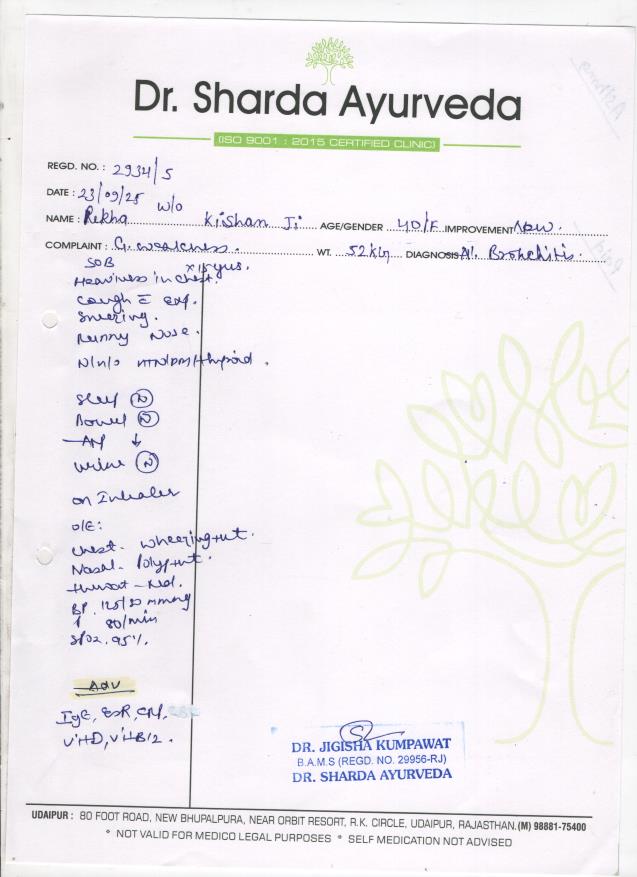 Dr. Sharda Ayurveda
(ISO 9001 : 2015 CERTIFIED CLINIC)
REGD. NO. : 2934/5
DATE : 23/09/25 W/O
NAME : Rekha Kishan Ji AGE/GENDER 40/F IMPROVEMENT New.
COMPLAINT : G. weakness. WT. 52kg DIAGNOSIS Al. Bronchitis.
SOB x 15 yrs.
Heaviness in chest.
Cough c̄ exp.
Sneezing.
Runny Nose.
N/H/O HTN/DM/Thyroid.
Sleep (N)
Bowel (N)
APP ↓
Urine (N)
on Inhaler
O/E:
Chest - Wheezing +nt.
Nasal - Polyp +nt.
throat - Red.
BP. 125/80 mmHg
P 80/min
SPO2. 95%.
ADV
IgE, ESR, CRP,
VitD, VitB12.
DR. JIGISHA KUMPAWAT
B.A.M.S (REGD. NO. 29956-RJ)
DR. SHARDA AYURVEDA
UDAIPUR : 80 FOOT ROAD, NEW BHUPALPURA, NEAR ORBIT RESORT, R.K. CIRCLE, UDAIPUR, RAJASTHAN. (M) 98881-75400
* NOT VALID FOR MEDICO LEGAL PURPOSES * SELF MEDICATION NOT ADVISED